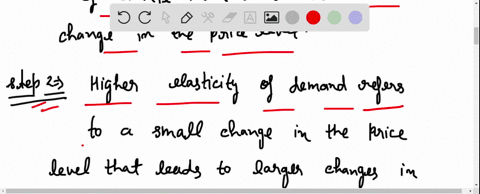 change in the price level.
Step 2⇒ Higher elasticity of demand refers
to a small change in the price
level that leads to larger changes in